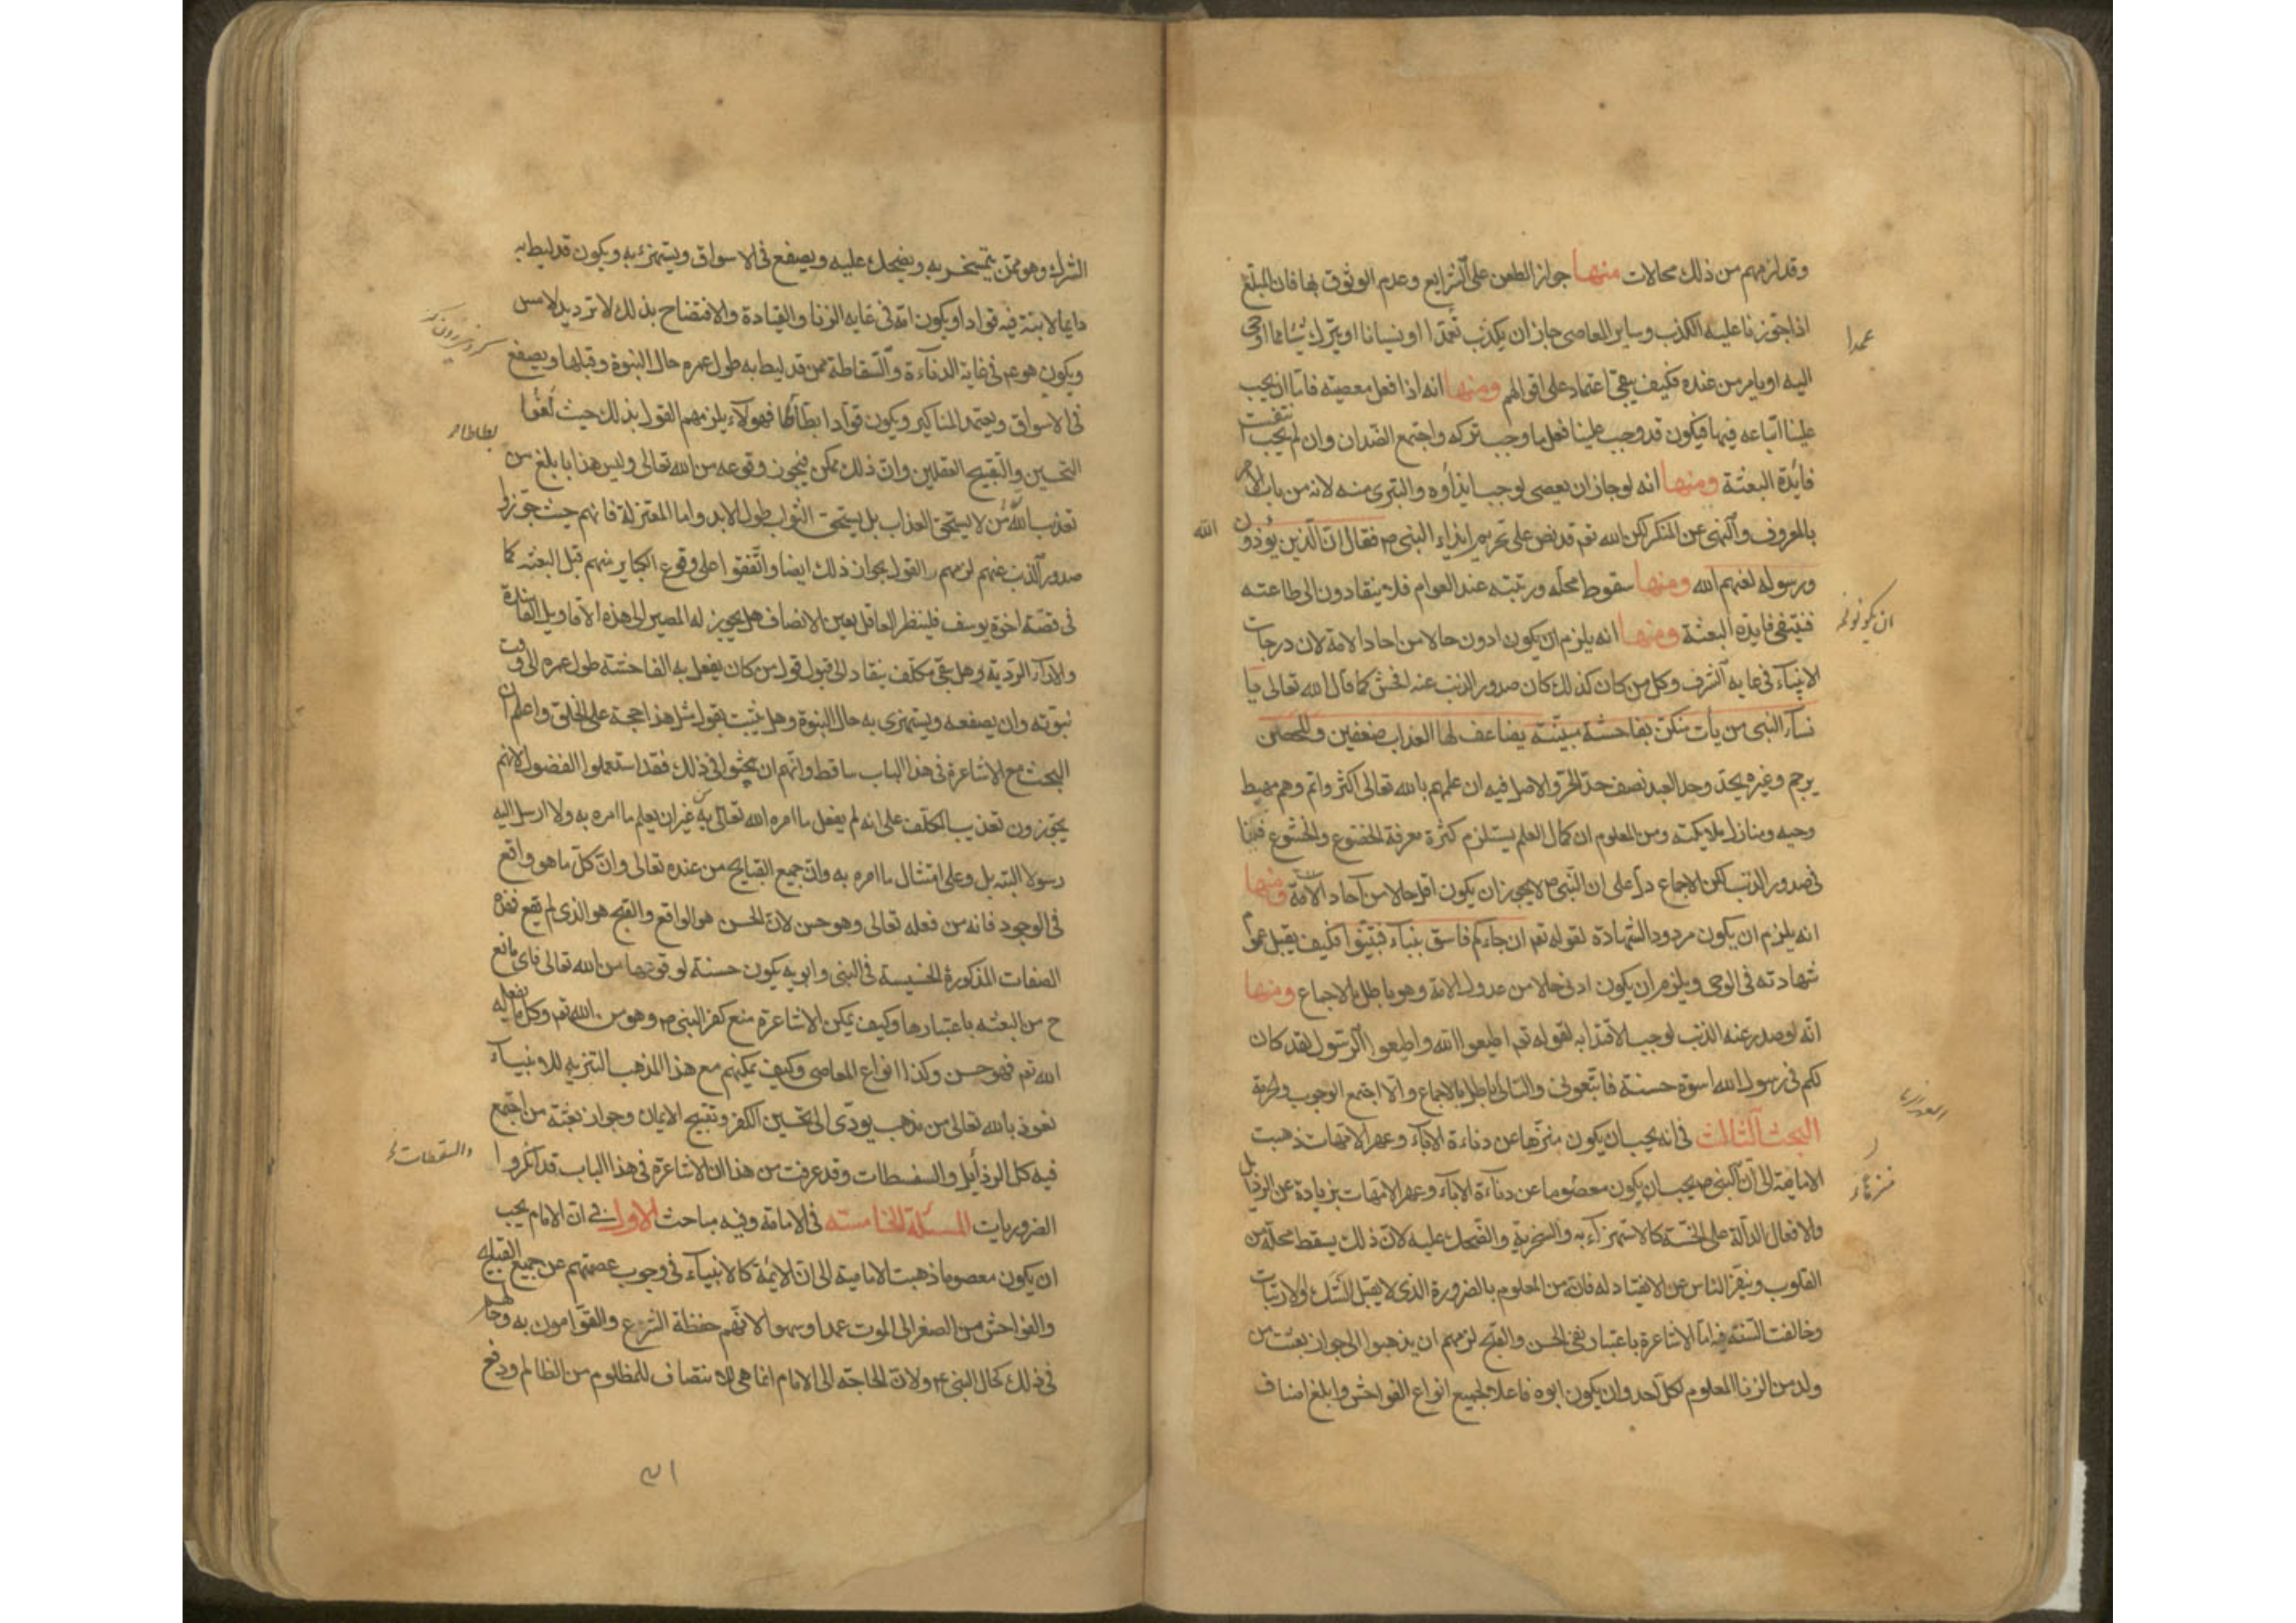 وقد لزمهم من ذلك محالات منها جواز الطعن على الشرايع وعدم الوثوق بها فان المبلّغ
اذا جوّزنا عليه الكذب وساير المعاصى جاز ان يكذب تعمّدا او نسيانا او يترك شيئا مما اوحى
عمدا
اليه او يامر من عنده فكيف يبقى اعتماد على اقوالهم ومنها انه اذا فعل معصية فامّا ان يجب
علينا اتباعه فيها فيكون قد وجب علينا فعل ما وجب تركه واجتمع الضدان وان لم يجب انتفت
فائدة البعثة ومنها انه لو جاز ان يعصى لوجب ايذاؤه والتبرى منه لانه من باب الامر
بالمعروف والنهى عن المنكر لكن الله تعم قد نص على تحريم ايذاء النبى ص فقال ان الذين يؤذون
الله
ورسوله لعنهم الله ومنها سقوط محله ورتبته عند العوام فلا ينقادون الى طاعته
فينتفى فايدة البعثة ومنها انه يلزم ان يكون ادون حالا من احاد الامة لان درجات
ان يكونوا
الانبياء فى غاية الشرف وكل من كان كذلك كان صدور الذنب عنه افحش كما قال الله تعالى يا
نساء النبى من يأت منكن بفاحشة مبيّنة يضاعف لها العذاب ضعفين والمحصن
يرجم وغيره يحدّ وحد العبد نصف حدّ الحرّ والاصل فيه ان علمهم بالله تعالى اكثر واتم وهم مهبط
وحيه ومنازل ملايكته ومن المعلوم ان كمال العلم يستلزم كثرة معرفة الخضوع والخشوع فينا
فى صدور الذنب لكن الاجماع دل على ان النبى ص لا يجوز ان يكون اقل حالا من آحاد الامة ومنها
انه يلزم ان يكون مردود الشهادة لقوله تعم ان جاءكم فاسق بنباء فتبيّنوا فكيف يقبل عموم
شهادته فى الوحى ويلزم ان يكون ادنى حالا من عدول الامة وهو باطل بالاجماع ومنها
انّه لو صدر عنه الذنب لوجب الاقتداء به لقوله تعم اطيعوا الله واطيعوا الرسول لقد كان
لكم فى رسول الله اسوة حسنة فاتّبعونى والتالى باطل بالاجماع والّا اجتمع الوجوب والحرمة
البحث الثالث فى انه يجب ان يكون منزّها عن دناءة الاباء وعهر الامهات ذهبت
الامامية الى ان النبى ص يجب ان يكون معصوما عن دناءة الاباء وعهر الامهات بزيادة عن الرذايل
والافعال الدالّة على الخسّة كالاستهزاء به والسخرية والضحك عليه لان ذلك يسقط محلّه من
القلوب وينفّر الناس عن الانقياد له فانّه من المعلوم بالضرورة الذى لا يقبل الشك والارتياب
وخالفت السنّة فيه امّا الاشاعرة باعتبار نفى الحسن والقبح لزمهم ان يذهبوا الى جواز بعثت من
ولد من الزنا المعلوم لكلّ احد وان يكون ابوه فاعلا لجميع انواع الفواحش وابلغ اصناف
الشرك وهو ممّن يتمسخر به ويضحك عليه ويصفع فى الاسواق ويستهزء به ويكون قد ليط به
دايما لابنة فيه قوادا ويكون امّه فى غاية الزنا والقيادة والافتضاح بذلك لا ترد يد لامس
ويكون هو عم فى غاية الدناءة والسقاطة ممن قد ليط به طول عمره حال النبوة وقبلها ويصفع
فى الاسواق ويعتمد المناكير ويكون قوّادا بطّاطا فهولاء يلزمهم القول بذلك حيث نفوا
التحسين والتقبيح العقليين وان ذلك ممكن فيجوز وقوعه من الله تعالى وليس هذا بابلغ من
تعذيب الله من لا يستحق العذاب بل يستحق الثواب طول الابد واما المعتزلة فانهم حيث جوّزوا
صدور الذنب عنهم لزمهم القول بجواز ذلك ايضا واتّفقوا على وقوع الكباير منهم قبل البعثه كما
فى قصّة اخوة يوسف فلينظر العاقل بعين الانصاف هل يجوز له المصير الى هذه الاقاويل الفاسدة
والاراء الردية وهل بقى مكلّف ينقاد الى قبول قول من كان يفعل به الفاحشة طول عمره الى وقت
نبوّته وان يصفعه ويستهزى به حال النبوة وهل يثبت بقول مثل هذا حجة على الخلق واعلم ان
البحث مع الاشاعرة فى هذا الباب ساقط وانّهم ان بحثوا فى ذلك فقد استعملوا الفضول لانهم
يجوّزون تعذيب المكلّف على انه لم يفعل ما امره الله تعالى به من غير ان يعلم ما امره به ولا ارسل اليه
رسولا البته بل وعلى امتثال ما امره به وان جميع القبايح من عنده تعالى وانّ كلّ ما هو واقع
فى الوجود فانه من فعله تعالى وهو حسن لانّ الحسن هو الواقع والقبح هو الذى لم يقع فهذه
الصفات المذكورة الخسيسة فى النبى وابويه يكون حسنة لوقوعها من الله تعالى فاى مانع
ح من البعثه باعتبارها وكيف يمكن الاشاعرة منع كفر النبى ص وهو من الله تعم وكل ما يفعله
الله تعم فهو حسن وكذا انواع المعاصى وكيف يمكنهم مع هذا المذهب التنزيه للانبياء
نعوذ بالله تعالى من مذهب يودّى الى تحسين الكفر وتقبيح الايمان وجواز بعثة من اجتمع
فيه كل الرذايل والسفسطات وقد عرفت من هذا ان الاشاعرة فى هذا الباب قد انكروا
والسقطات
الضروريات المسئلة الخامسة فى الامامة وفيه مباحث الاول فى انّ الامام يجب
ان يكون معصوما ذهبت الامامية الى انّ الائمة كالانبياء فى وجوب عصمتهم عن جميع القبايح
والفواحش من الصغر الى الموت عمدا وسهوا لانّهم حفظة الشرع والقوّامون به وحالهم
فى ذلك كحال النبى ص ولانّ الحاجة الى الامام انما هى للانتصاف للمظلوم من الظالم ودفع